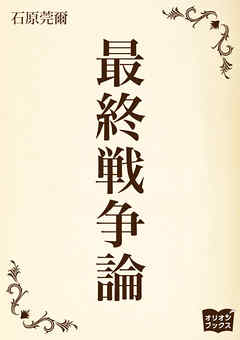 石原莞爾
最終戦争論
オリオン
ブックス